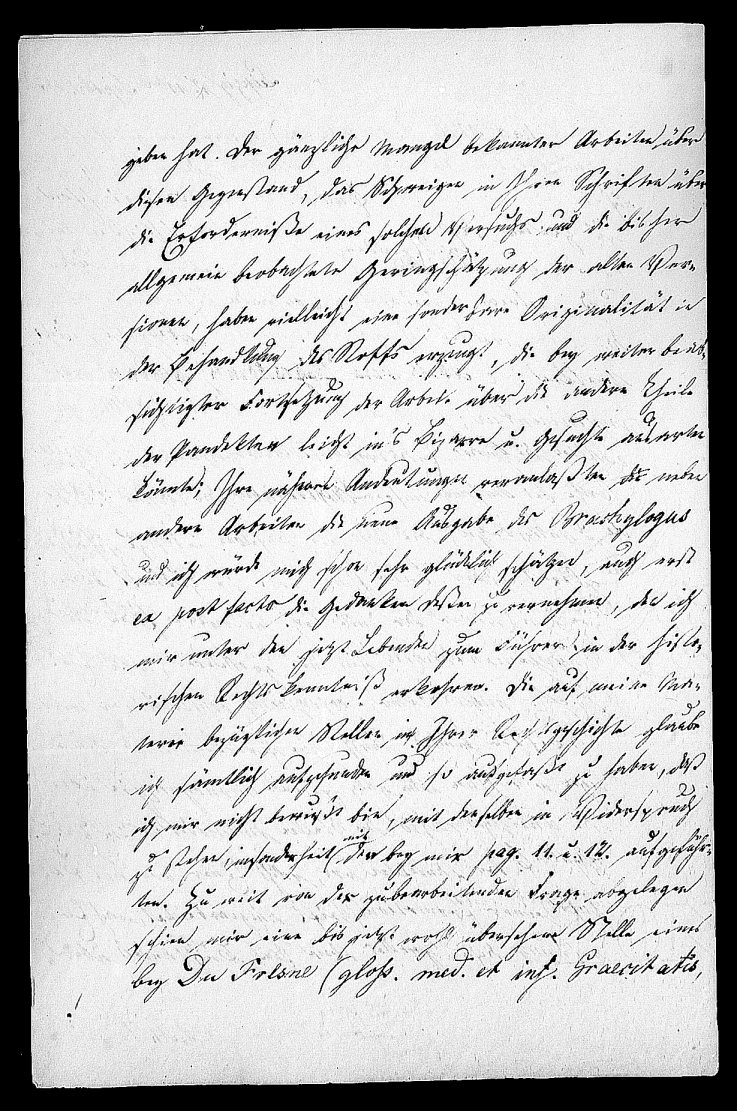 geben hat. Der gänzliche Mangel bekannter Arbeiten über
diesen Gegenstand, das Schweigen in Ihren Schriften über
die Erforderniße eines solchen Versuchs, und die bisher
allgemein beobachtete Geringschätzung der alten Ver-
sionen, haben vielleicht eine sonderbare Originalität in
der Behandlung des Stoffs erzeugt, die bey weiter beab-
sichtigter Fortsetzung der Arbeit über die andern Theile
der Pandekten leicht in's Bizarre u. Gesuchte ausarten
könnte; Ihre nähern Andeutungen veranlaßten neben
andern Arbeiten die neue Ausgabe des Brachylogus
und ich würde mich schon sehr glücklich schätzen, auch erst
ex post facto die Gedanken deßen zu vernehmen, den ich
mir unter den jetzt Lebenden zum Führer in der histo-
rischen Rechtskenntniß erkohren. Die auf meine Ma-
terie bezüglichen Stellen in Ihrer Rechtsgeschichte glaube
ich sämtlich aufgefunden und so aufgefaßt zu haben, daß
ich mir nicht bewußt bin, mit denselben in Widerspruch
zu stehen, insonderheit mit den bey mir pag. 11. u. 12. aufgeführ-
ten. Zu weit von der zubearbeitenden Frage abgelegen
schien mir eine bis jetzt wohl übersehene Stelle eines
bey Du Fresne (gloß. med. et inf. Graecitatis,